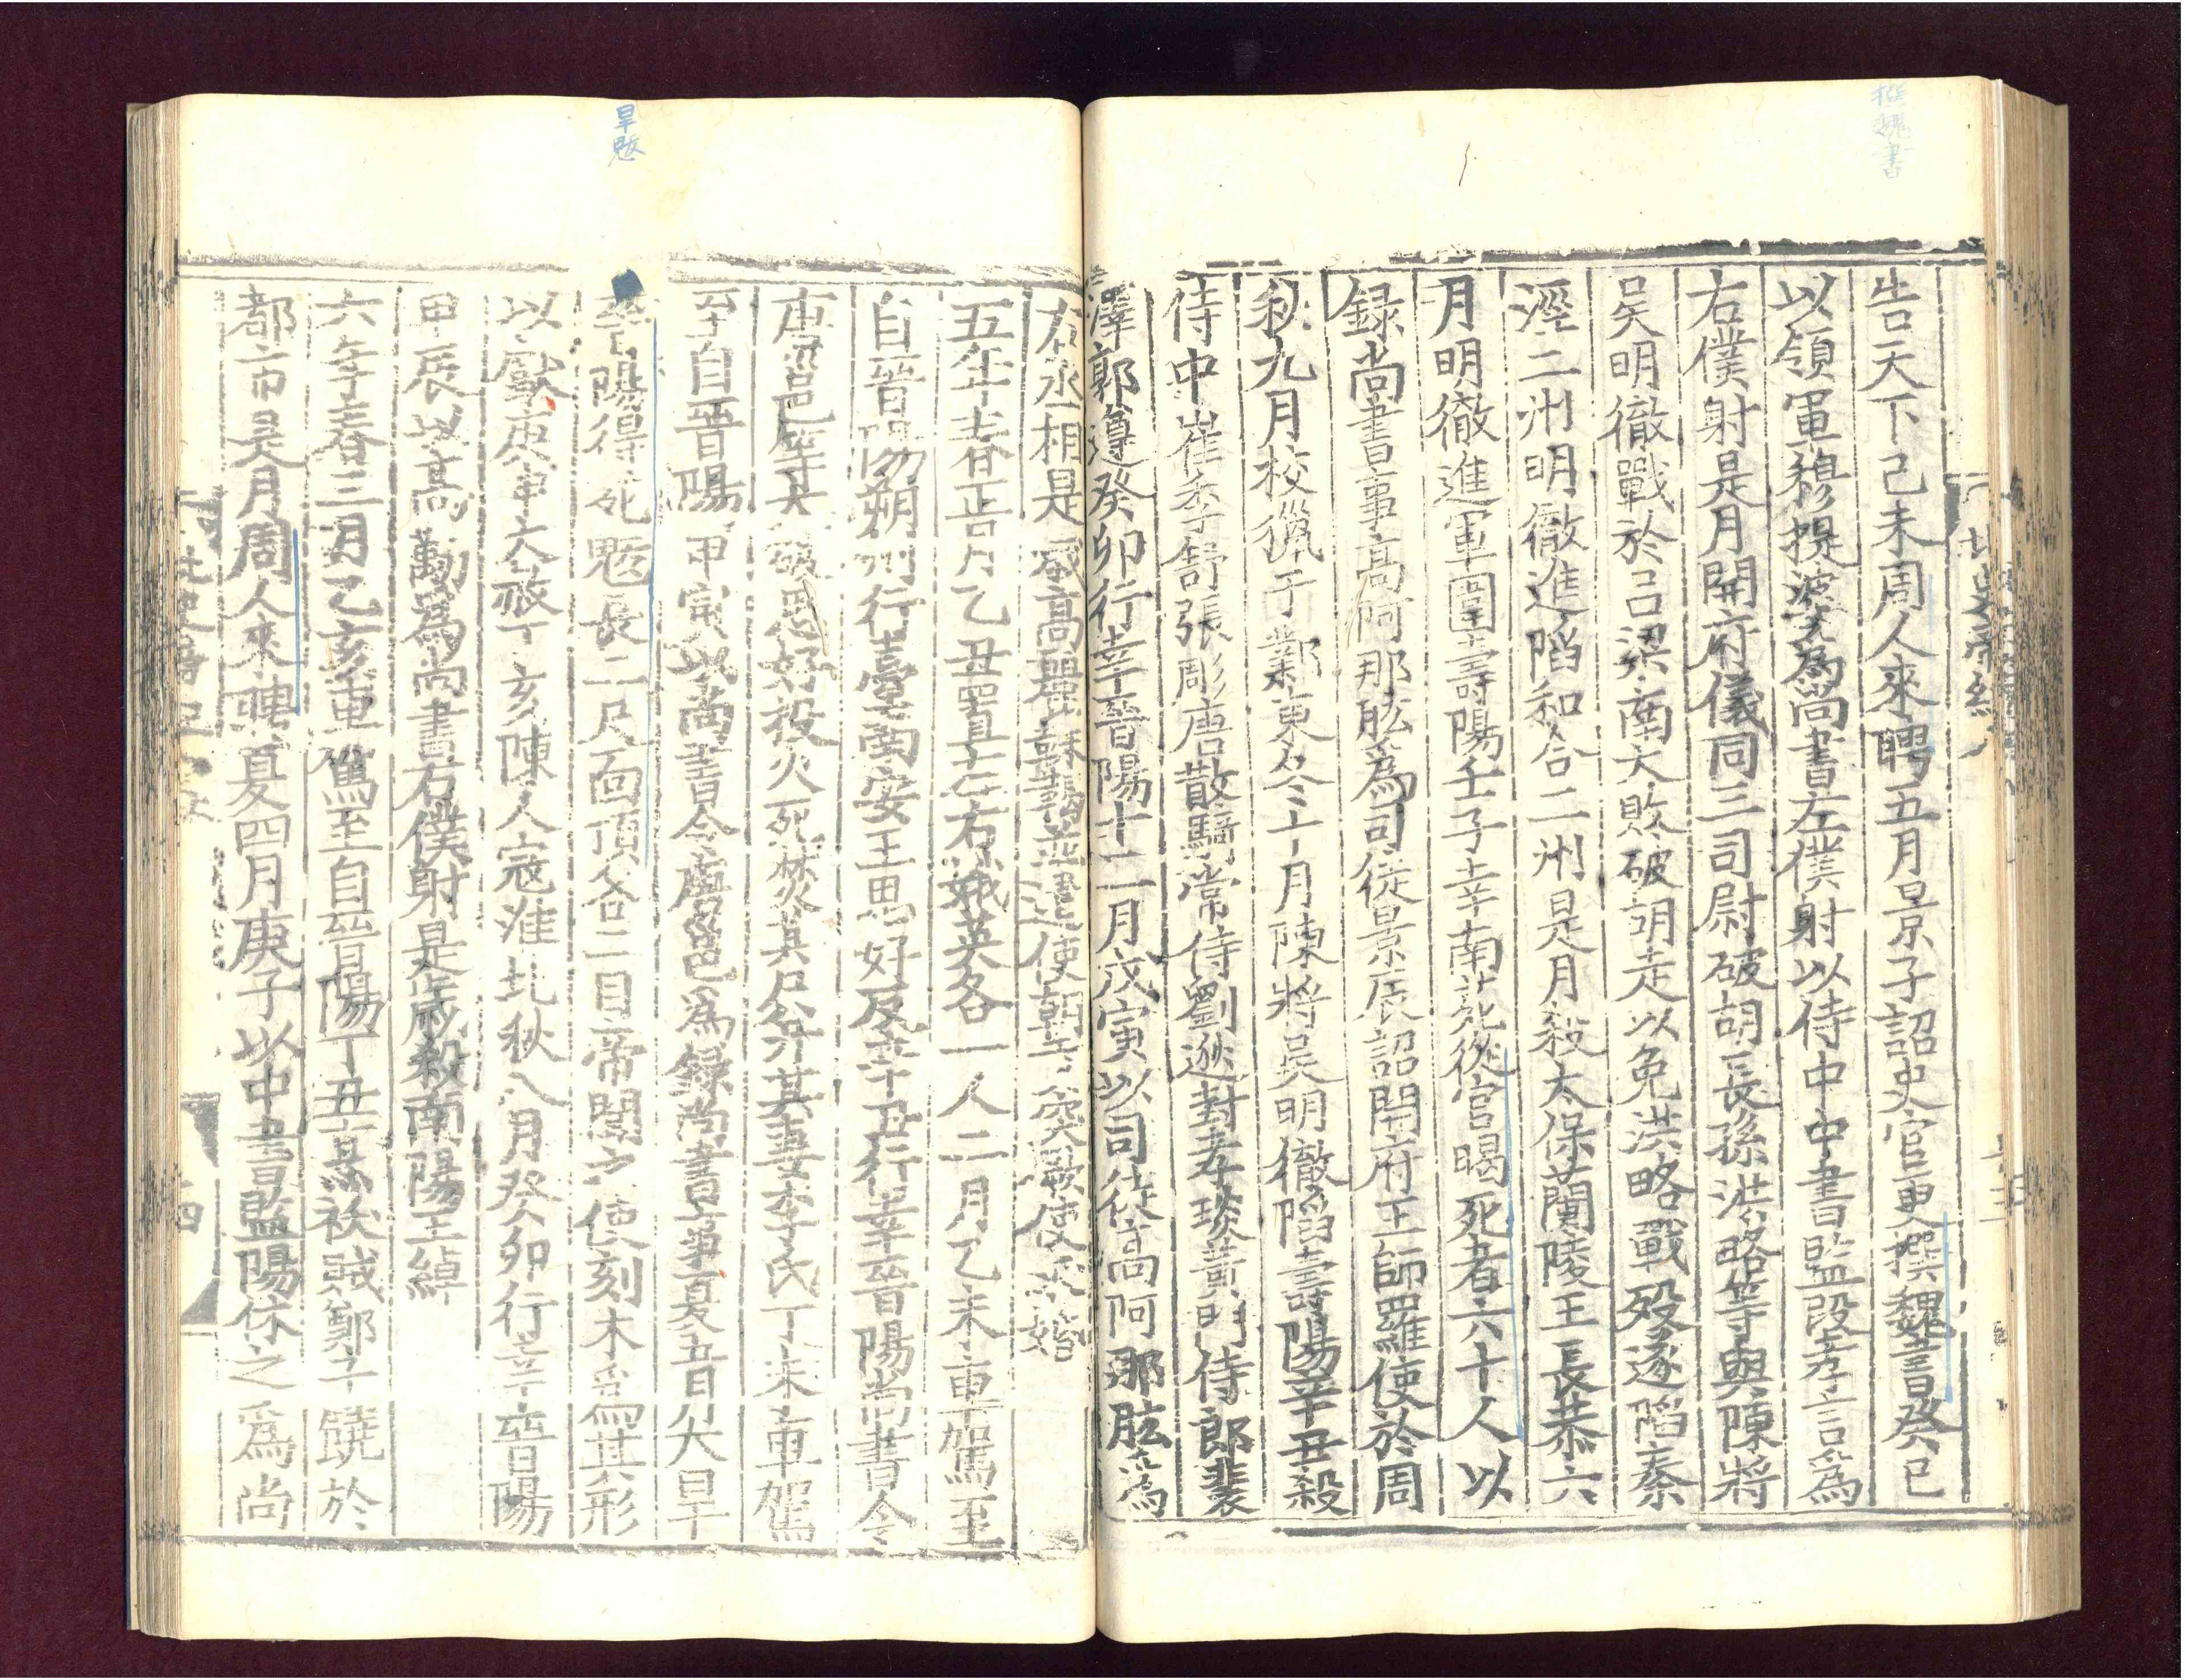 撰魏書
告天下己未周人來聘五月景子詔史官更撰魏書癸巳
以領軍穆提婆爲尚書左僕射以侍中中書監段孝言爲
右僕射是月開府儀同三司尉破胡長孫洪略等與陳將
吳明徹戰於呂梁南大敗破胡走以免洪略戰殁遂陷秦
涇二州明徹進陷和合二州是月殺太保蘭陵王長恭六
月明徹進軍圍壽陽壬子幸南苑從官暍死者六十人以
録尚書事高阿那肱爲司徒景辰詔開府王師羅使於周
秋九月校獵于鄴東冬十月陳將吳明徹陷壽陽辛丑殺
侍中崔季舒張彫唐散騎常侍劉逖封孝琰黄門侍郎裴
澤郭遵癸卯行幸晋陽十二月戊寅以司徒高阿那肱爲
旱魃
右丞相是歳高麗靺鞨並遣使朝突厥使求婚
五年春正月乙丑置左右娥英各一人二月乙未車駕至
自晉陽朔州行臺南安王思好反辛丑行幸晉陽尚書令
唐邕等大破思好投火死焚其屍并其妻李氏丁未車駕
至自晉陽甲寅以尚書令唐邕爲録尚書事夏五月大旱
晉陽得死魃長二尺面頂各二目帝聞之使刻木爲其形
以獻庚申大赦丁亥陳人寇淮北秋八月癸卯行幸晉陽
甲辰以高勱爲尚書右僕射是歳殺南陽王綽
六年春三月乙亥車駕至自晉陽丁丑烹祅賊鄭子饒於
都市是月周人來聘夏四月庚子以中書監陽休之爲尚